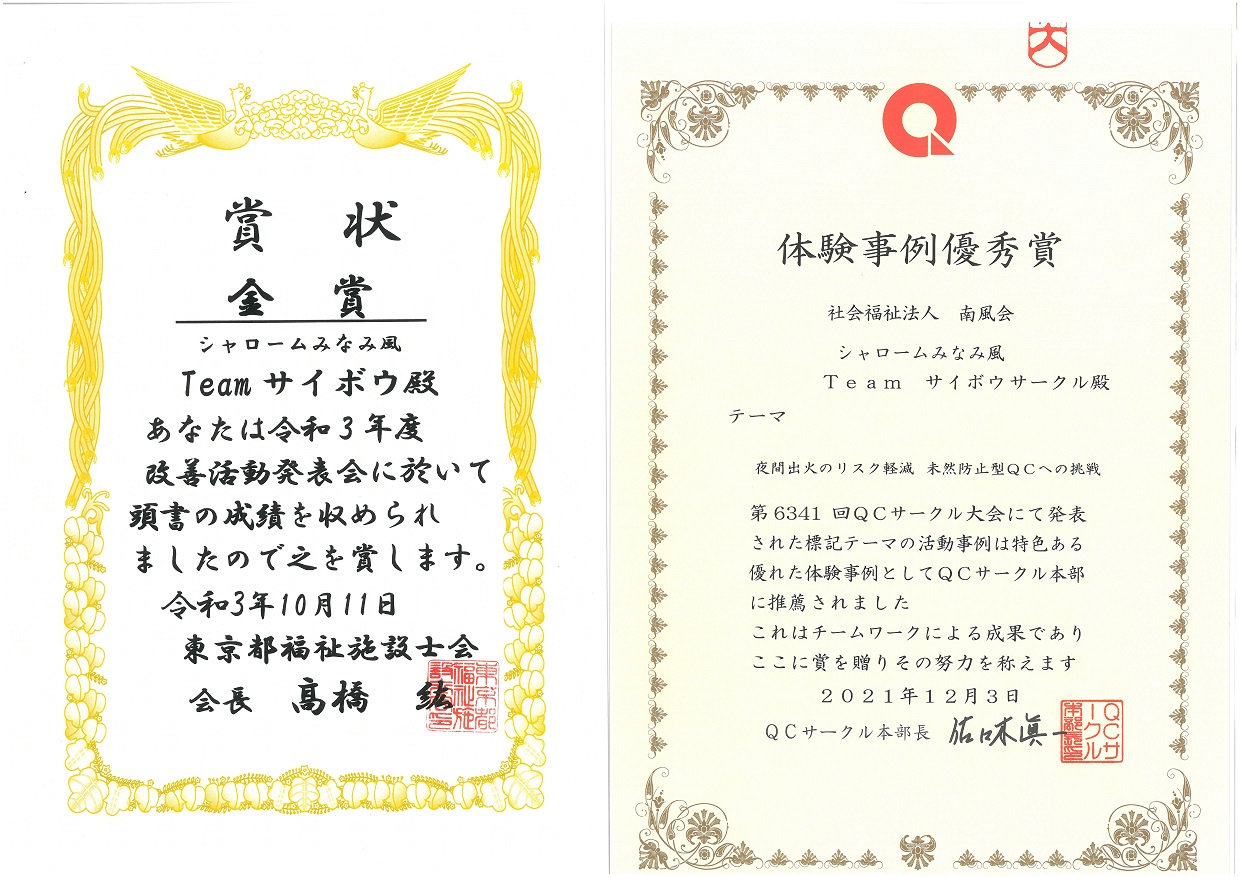 賞 状
金 賞
シャロームみなみ風
Team サイボウ殿
あなたは令和３年度
改善活動発表会に於いて
頭書の成績を収められ
ましたので之を賞します。
令和3年10月11日
東京都福祉施設士会
会長 髙橋 紘
東京都
福祉施
設士会
大
Q
体験事例優秀賞
社会福祉法人 南風会
シャロームみなみ風
Ｔｅａｍ サイボウサークル殿
テーマ
夜間出火のリスク軽減 未然防止型ＱＣへの挑戦
第 6341 回ＱＣサークル大会にて発表
された標記テーマの活動事例は特色ある
優れた体験事例としてＱＣサークル本部
に推薦されました
これはチームワークによる成果であり
ここに賞を贈りその努力を称えます
２０２１年１２月３日
ＱＣサークル本部長 佐々木眞一
ＱＣサ
ークル